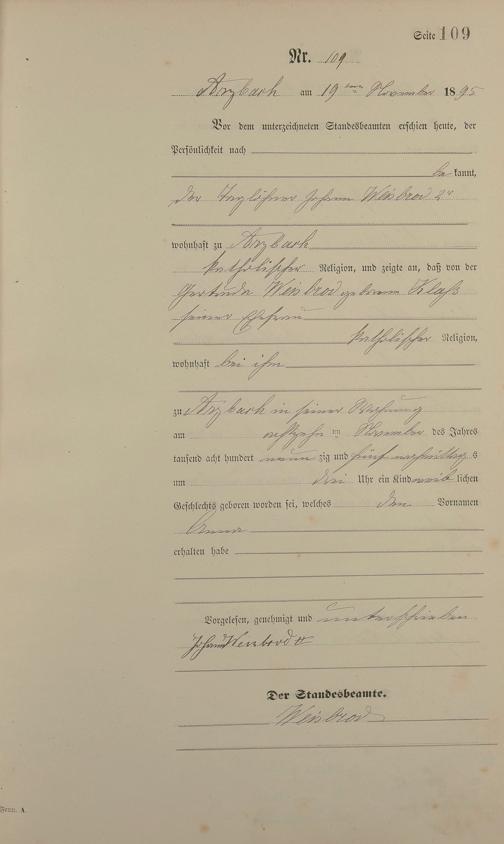 Seite 109
Nr. 109
Arzbach am 19ten November 1895
Vor dem unterzeichneten Standesbeamten erschien heute, der
Persönlichkeit nach
be kannt,
der Taglöhner Johann Weisbrod 2r
wohnhaft zu Arzbach
katholischer Religion, und zeigte an, daß von der
Gertruda Weisbrod geborene Klaß
seiner Ehefrau
katholischer Religion,
wohnhaft bei ihm
zu Arzbach in seiner Wohnung
am achtzehnten November des Jahres
tausend acht hundert neun zig und fünf nachmittags
um drei Uhr ein Kind weib lichen
Geschlechts geboren worden sei, welches den Vornamen
Anna
erhalten habe
Vorgelesen, genehmigt und unterschrieben
Johann Weisbrod II
Der Standesbeamte.
Weisbrod
Form. A.